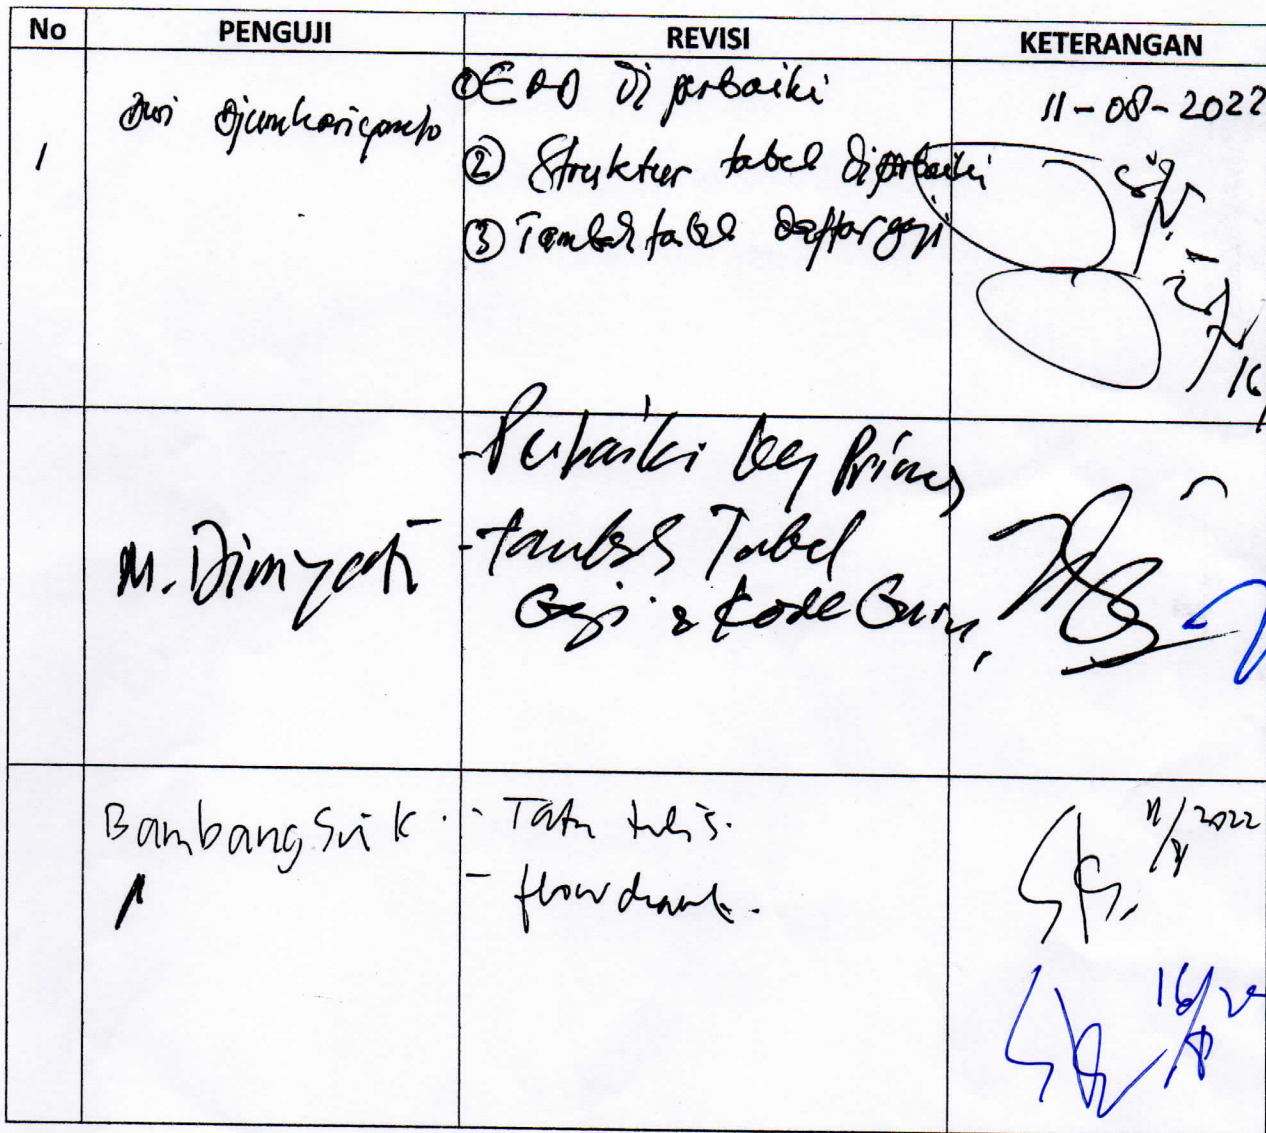 No PENGUJI REVISI KETERANGAN
1
① ERD Diperbaiki
② Struktur tabel Diperbaiki
③ Tambah tabel Daftar gaji
11-08-2022
16
M. Dimyati
- Perbaiki Key Primer
- tambah Tabel
Gaji & Kode Guru,
Bambang Sri K.
- Tata tulis.
- flowchart.
11/8 2022
16/8